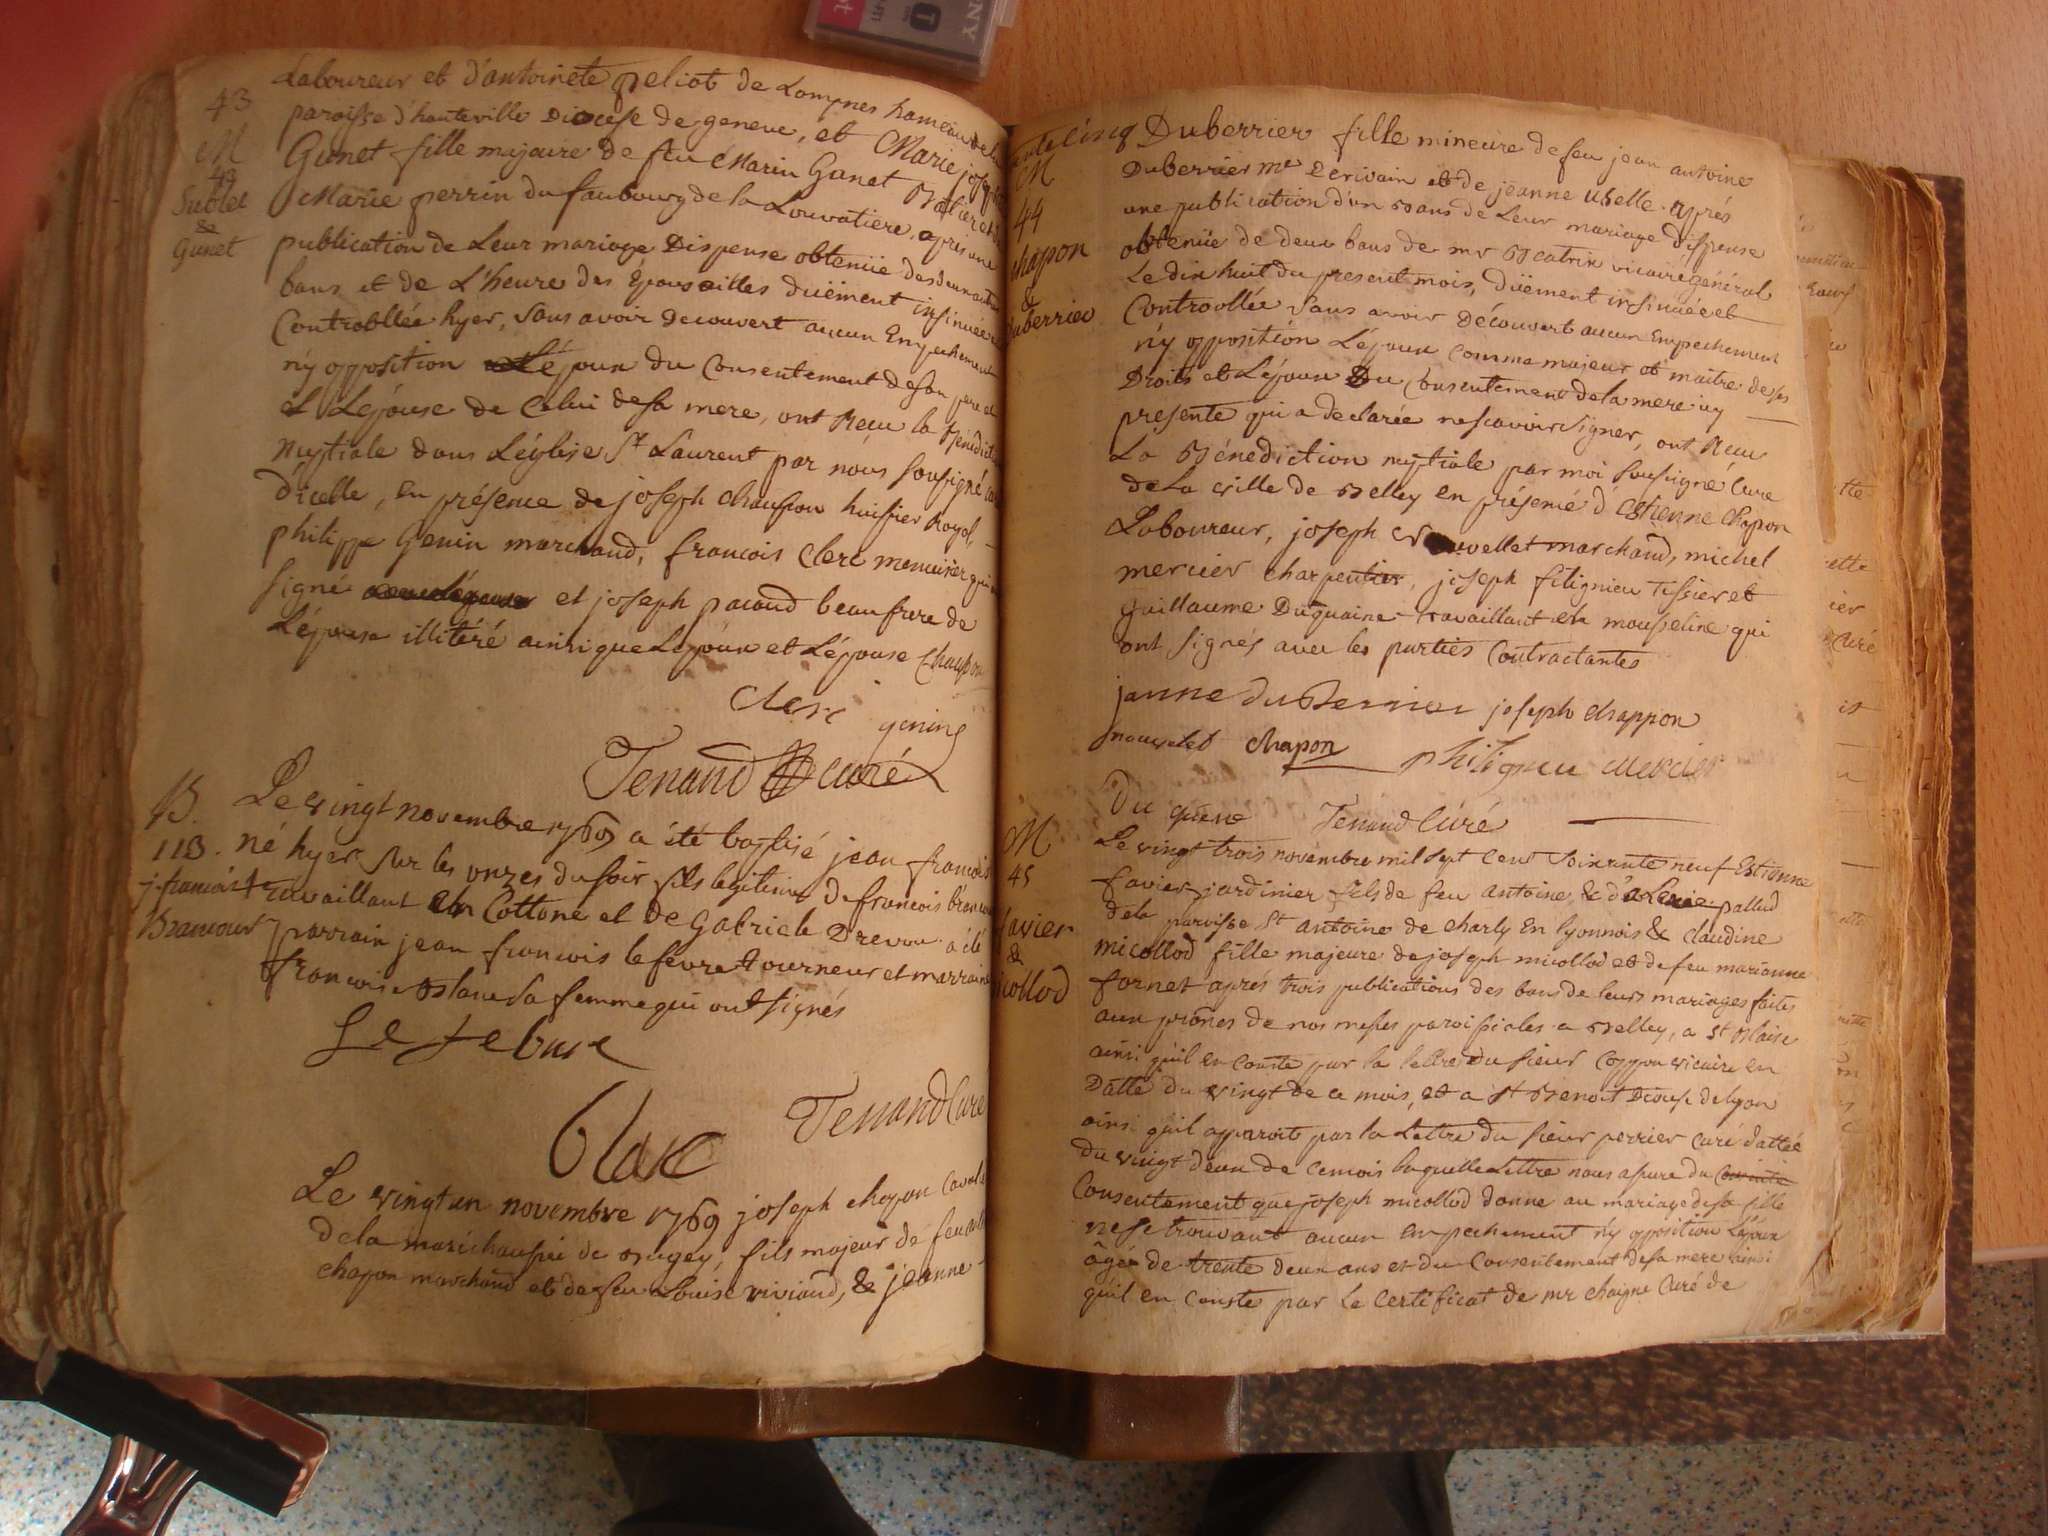 43
M
43
Sublet
&
Gunet
Laboureur et d'antoinete peliot de Lompnes hameau de la
paroisse d'hauteville Diocese de geneve, et Marie josephte
Gunet fille majeure de feu Marin Gunet et de
Marie perrin du faubourg de la Louvatiere, apres une
publication de Leur mariage Dispense obtenüe des deux autres
bans et de L'heure des Epousailles düement insinuée
Controllée hyer, sans avoir decouvert aucun Empechement
n'y opposition Lépoux du Consentement de son pere et
L'épouse de Celui desa mere, ont Reçu la Bénédiction
Nuptiale dans Léglise St Laurent par nous soussigné curé
d'icelle, en présence de joseph chaupon huissier Royal,
philippe Genin marchand, francois Clerc menuisier qui
signé et joseph pacoud beaufrere de
L'épouse illitéré ainsi que Lépoux et L'épouse Chaupon
Clerc genin
Tenand Curé
B.
113.
j. francois
Brancour
Le vingt novembre 1769 a été baptisé jean francois
né hyer sur les onzes du soir fils legitime de francois brancour
travaillant en Cottone et de Gabriele Drevon a été
parrain jean francois lefevre tourneur et marraine
francoise Blanc sa femme qui ont signés
Le febure
blanc
Tenand Curé
Le vingt un novembre 1769 joseph chapon Cavalier
dela maréchaussée de Bugey, fils majeur de feu
chapon marchand et de feu Louise riviand, & jeanne
cinq
M
44
chapon
&
duberrier
Duberrier fille mineure de feu jean antoine
Duberrier me Ecrivain et de jeanne Uselle. aprés
une publication d'un Bans de Leur mariage dispense
obtenüe de deux bans de mr Beatrix vicaire général
Le dix huit du present mois, düement insinuée et
Controollée sans avoir découvert aucun Empechement
n'y opposition Lépoux Comme majeur et maitre de ses
Droits et Lépouse Du Consentement dela mere icy
presente qui a declarée ne scavoir signer, ont Recu
La Bénédiction nuptiale par moi soussigné Curé
dela ville de Belley en présence d'Estienne Chapon
Laboureur, joseph Nouvellet marchand, michel
mercier charpentier, joseph filignieu Tissier et
guillaume Duquaine travaillant en mousseline qui
ont signés avec les parties Contractantes
janne duBerrier joseph chappon
nouvelet chapon philignieu Mercier
Du quene Tenand Curé
M
45
favier
&
micollod
Le vingt trois novembre mil sept Cent soixante neuf Estienne
favier jardinier fils de feu antoine, & d' pallud
dela paroisse St antoine de charly En lyonnois & Claudine
micollod fille majeure de joseph micollod et de feu marianne
fornet aprés trois publications des bans de leurs mariages faites
aux prônes de nos messes paroissiales a Belley, a St Blaise
ainsi quil en Conste par la lettre Du sieur Coppon vicaire en
Datte du vingt de ce mois, et a St Benoit Diocese de lyon
ainsi quil apparoit par la Lettre du sieur perrier Curé dattée
du vingt deux de cemois laquelle Lettre nous assure du
Consentement que joseph micollod donne au mariage desa fille
ne se trouvant aucun Empechement n'y opposition Lépoux
âgée de trente deux ans et du Consentement desa mere ainsi
quil en Conste par Le Certificat de mr chaigne Curé de
SONY